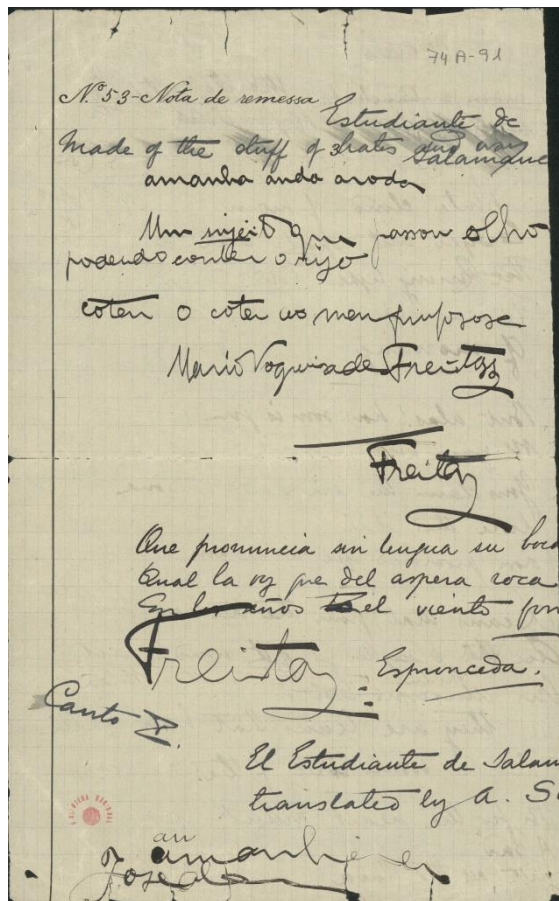 74A-91
Nº 53-Nota de remessa
Estudiante de
Made of the stuff of
Salamanca
amanha anda aroda
Um sujeito que passou olho
podendo conter o rijo
coten o coten ao meu
Mario Nogueira de Freitas
Freitas
Que pronuncia sin lengua su boca
Qual la voz que del aspera roca
En los años el viento for
Freitas
Espronceda.
Canto
El Estudiante de Salam
translated by A. S
an
amanhã
José